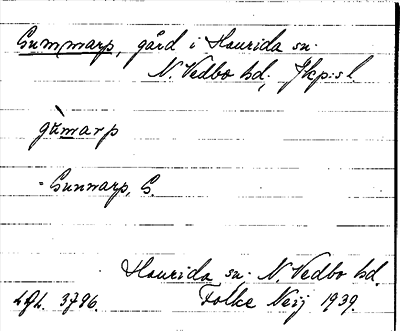 Gummarp, gård i Haurida sn.
N. Vedbo hd, Jkp:s l.
gùmarp
= Gunnarp, G.
Haurida sn. N. Vedbo hd.
3796. Folke 1939.